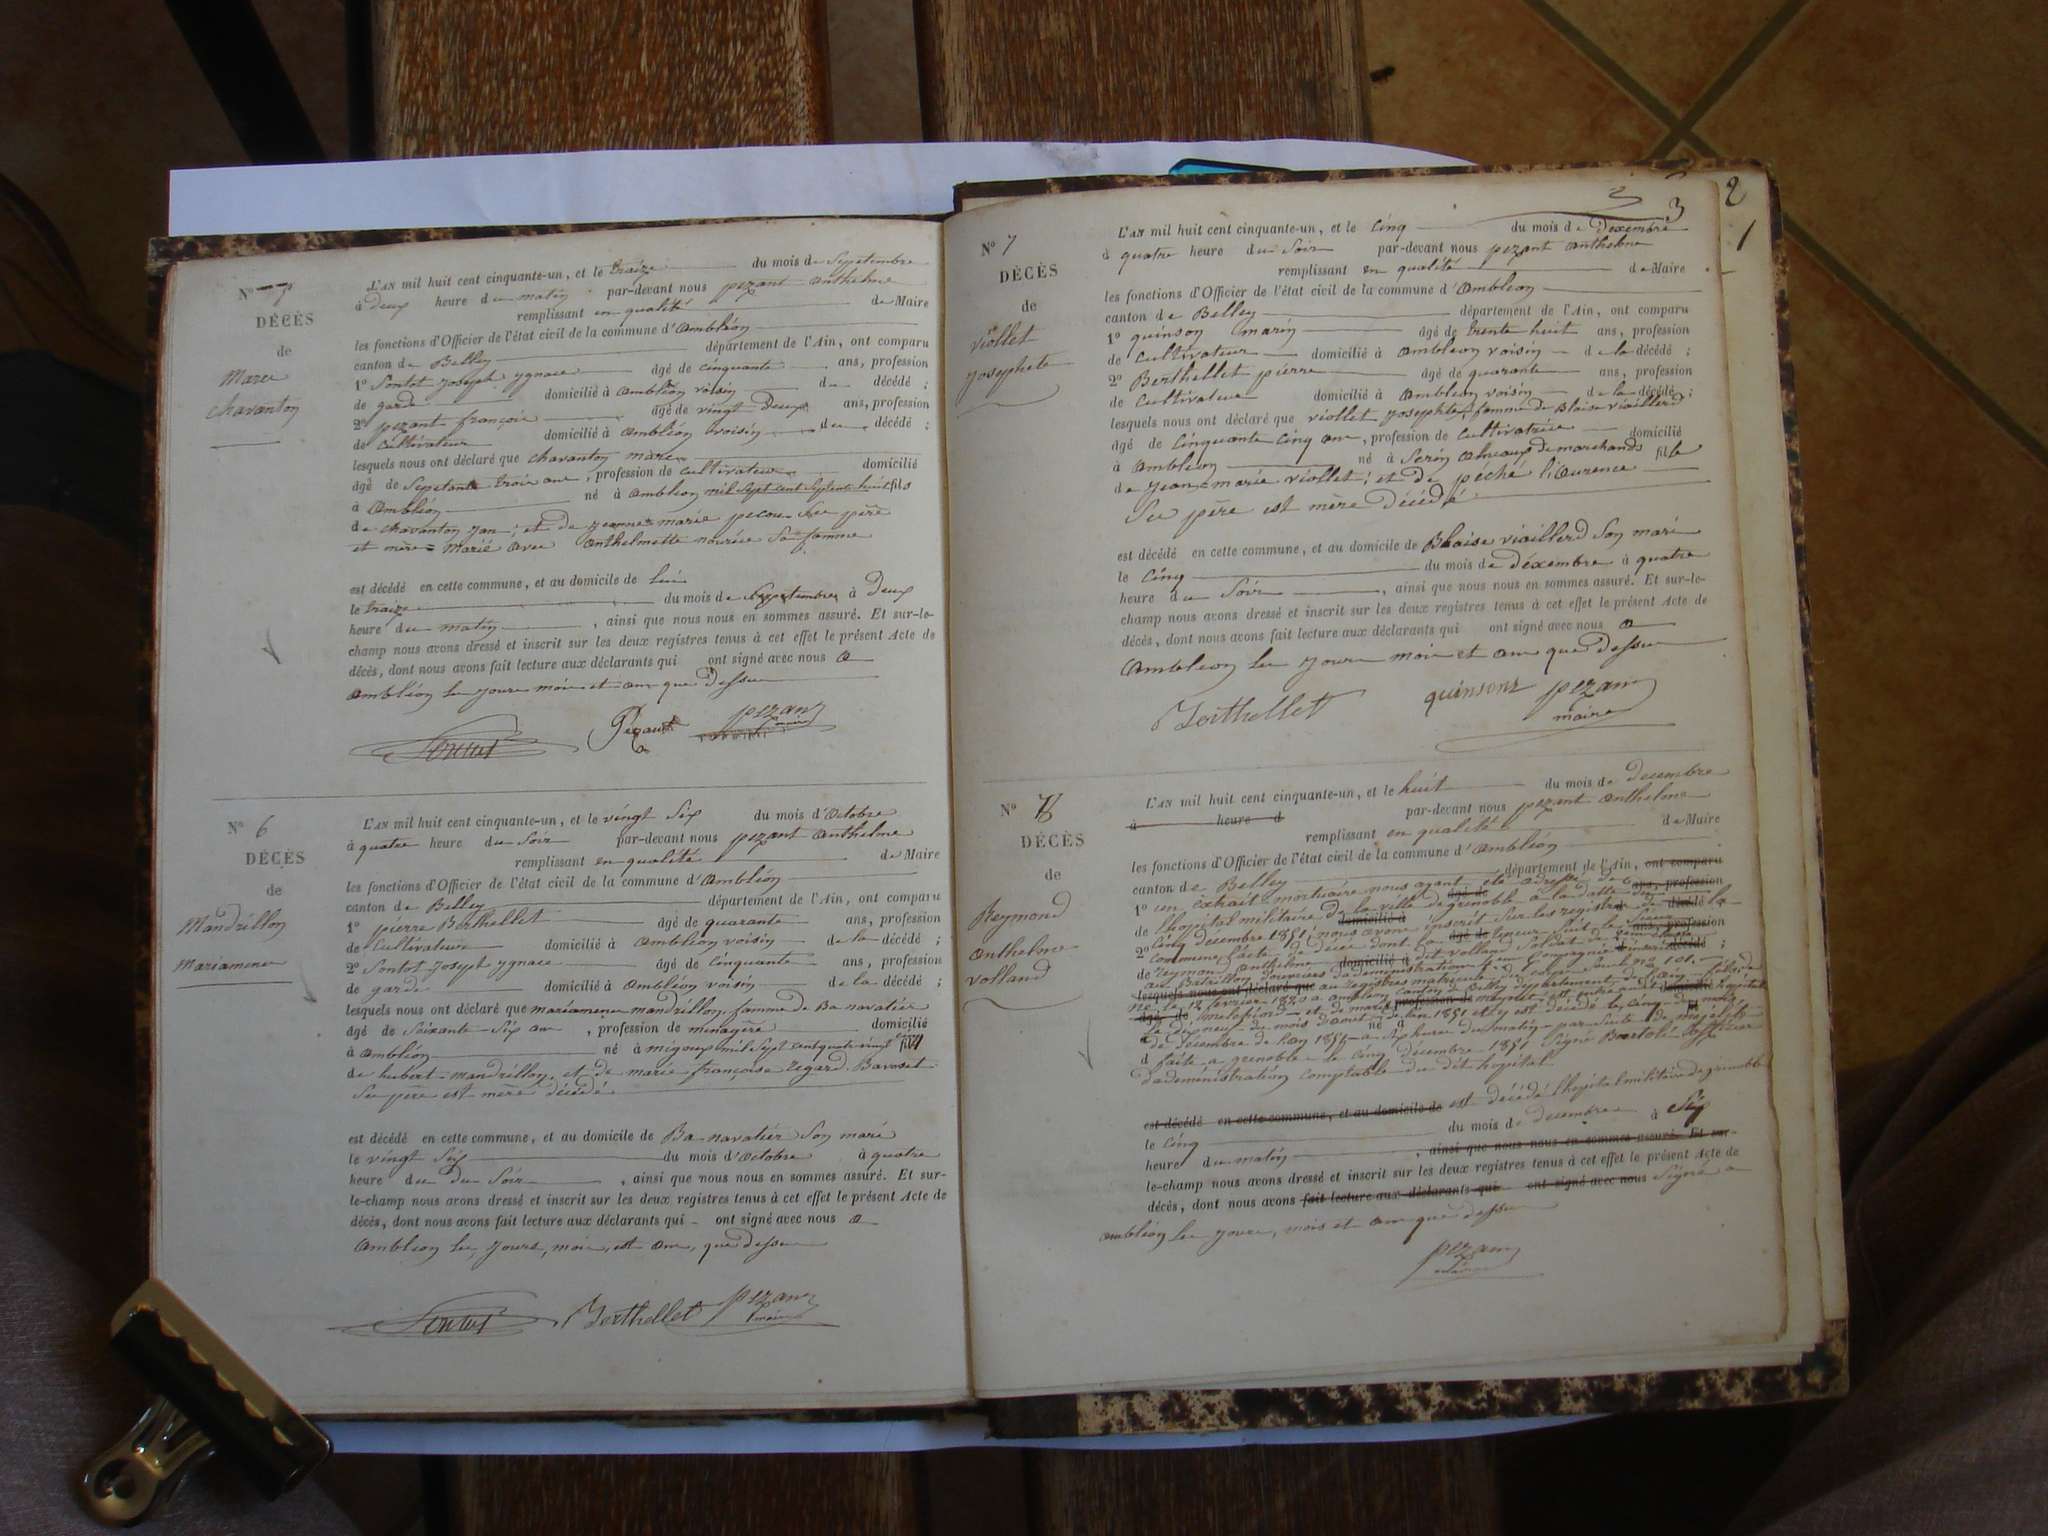 DÉCÈS
de
Marce
chavanton
L'AN mil huit cent cinquante-un, et le traize du mois de Septembre
à Deux heure du matin par-devant nous pezant anthelme
remplissant en qualité de Maire
les fonctions d'Officier de l'état civil de la commune d'ambléon
canton de Belley département de l'Ain, ont comparu
1° Sontot Joseph ygnace âgé de cinquante ans, profession
de garde domicilié à ambléon voisin du décédé ;
2° pezant françois âgé de vingt Deux ans, profession
de cultivateur domicilié à ambléon voisin du décédé ;
lesquels nous ont déclaré que chavanton marce
âgé de Septante trois an, profession de cultivateur domicilié
à ambléon né à ambléon mil Sept cent Septente huit fils
de chavanton jan ; et de jeanne-marie pecou père
et mère marié avec anthelmette Sa famme
est décédé en cette commune, et au domicile de lui
le traize du mois de Septembre à Deux
heure du matin, ainsi que nous nous en sommes assuré. Et sur-le-
champ nous avons dressé et inscrit sur les deux registres tenus à cet effet le présent Acte de
décès, dont nous avons fait lecture aux déclarants qui ont signé avec nous a
ambléon les jours mois et an que Dessus
Pezant pezant maire
N° 6
DÉCÈS
de
Mandrillon
Mariamene
L'AN mil huit cent cinquante-un, et le vingt Six du mois d'octobre
à quatre heure du Soir par-devant nous pezant anthelme
remplissant en qualité de Maire
les fonctions d'Officier de l'état civil de la commune d'ambléon
canton de Belley département de l'Ain, ont comparu
1° pierre Berthellet âgé de quarante ans, profession
de Cultivateur domicilié à ambléon voisin de la décédé ;
2° Sontot Joseph ygnace âgé de cinquante ans, profession
de garde domicilié à ambléon voisin de la décédé ;
lesquels nous ont déclaré que mariamene mandrillon, famme de Ba navatier
âgé de Soisante-Six an, profession de minagère domicilié
à ambléon né à migoux mil Sept cent quatre vingt
de hubert-mandrillon, et de marie-françoise regard Bavoset
Ses père est mère décédé
est décédé en cette commune, et au domicile de Ba navatier Son mari
le vingt Six du mois d'octobre à quatre
heure du du Soir, ainsi que nous nous en sommes assuré. Et sur-
le-champ nous avons dressé et inscrit sur les deux registres tenus à cet effet le présent Acte de
décès, dont nous avons fait lecture aux déclarants qui ont signé avec nous a
ambléon les jours, mois, est an, que dessus
Berthellet pezant maire
3
2
1
N° 7
DÉCÈS
de
viollet
josephete
L'AN mil huit cent cinquante-un, et le cinq du mois de Dexembre
à quatre heure du Soir par-devant nous pezant anthelme
remplissant en qualité de Maire
les fonctions d'Officier de l'état civil de la commune d'ambléon
canton de Belley département de l'Ain, ont comparu
1° quinson marin âgé de trente huit ans, profession
de Cultivateur domicilié à ambléon voisin de la décédé ;
2° Berthellet pierre âgé de quarante ans, profession
de Cultivateur domicilié à ambléon voisin de la décédé ;
lesquels nous ont déclaré que viollet josephte, famme de Blaise viaillerd
âgé de cinquante cinq an, profession de cultivatrice domicilié
à ambléon né à Serin de marchands fille
de jean-marie viollet ; et de péché l'aurence
Ses père est mère décédé
est décédé en cette commune, et au domicile de Blaise viaillerd Son mari
le cinq du mois de déxembre à quatre
heure du Soir, ainsi que nous nous en sommes assuré. Et sur-le-
champ nous avons dressé et inscrit sur les deux registres tenus à cet effet le présent Acte de
décès, dont nous avons fait lecture aux déclarants qui ont signé avec nous a
ambléon les jours mois et an que dessus
Berthellet quinsont pezant maire
N° 8
DÉCÈS
de
Reymond
anthelme
volland
L'AN mil huit cent cinquante-un, et le huit du mois de decembre
à heure d par-devant nous pezant anthelme
remplissant en qualité de Maire
les fonctions d'Officier de l'état civil de la commune d'ambléon
canton de Belley département de l'Ain, ont comparu
1° un extrait mortuaire nous ayant été adressé de
de l'hopital militaire de la ville de grenoble à la datte du
2° cinq decembre 1851 ; nous avons inscrit Sur les registres de la
commune l'acte de décè dont la teneur Suit le Sieur
de reymond anthelme dit volland Soldat de
au Bataillon d'ouvriers d'administration
né le 12 fevrier 1820 a ambléon, canton de Belley département de l'ain
le dixneuf du mois d'aout de l'an 1851 et y est décédé le cinq du mois
de decembre de l'an 1851 a Six heure du matin par Suite de
d faite a grenoble le cinq décembre 1851 Signé Bartoli officier
d'administration comptable du dit hopital
est décédé en cette commune, et au domicile de est décédé l'hopital militaire de grenoble
le cinq du mois de decembre à Six
heure du matin, ainsi que nous nous en sommes assuré. Et sur-
le-champ nous avons dressé et inscrit sur les deux registres tenus à cet effet le présent Acte de
décès, dont nous avons fait lecture aux déclarants qui ont signé avec nous Signé a
ambléon les jours, mois et an que dessus
pezant